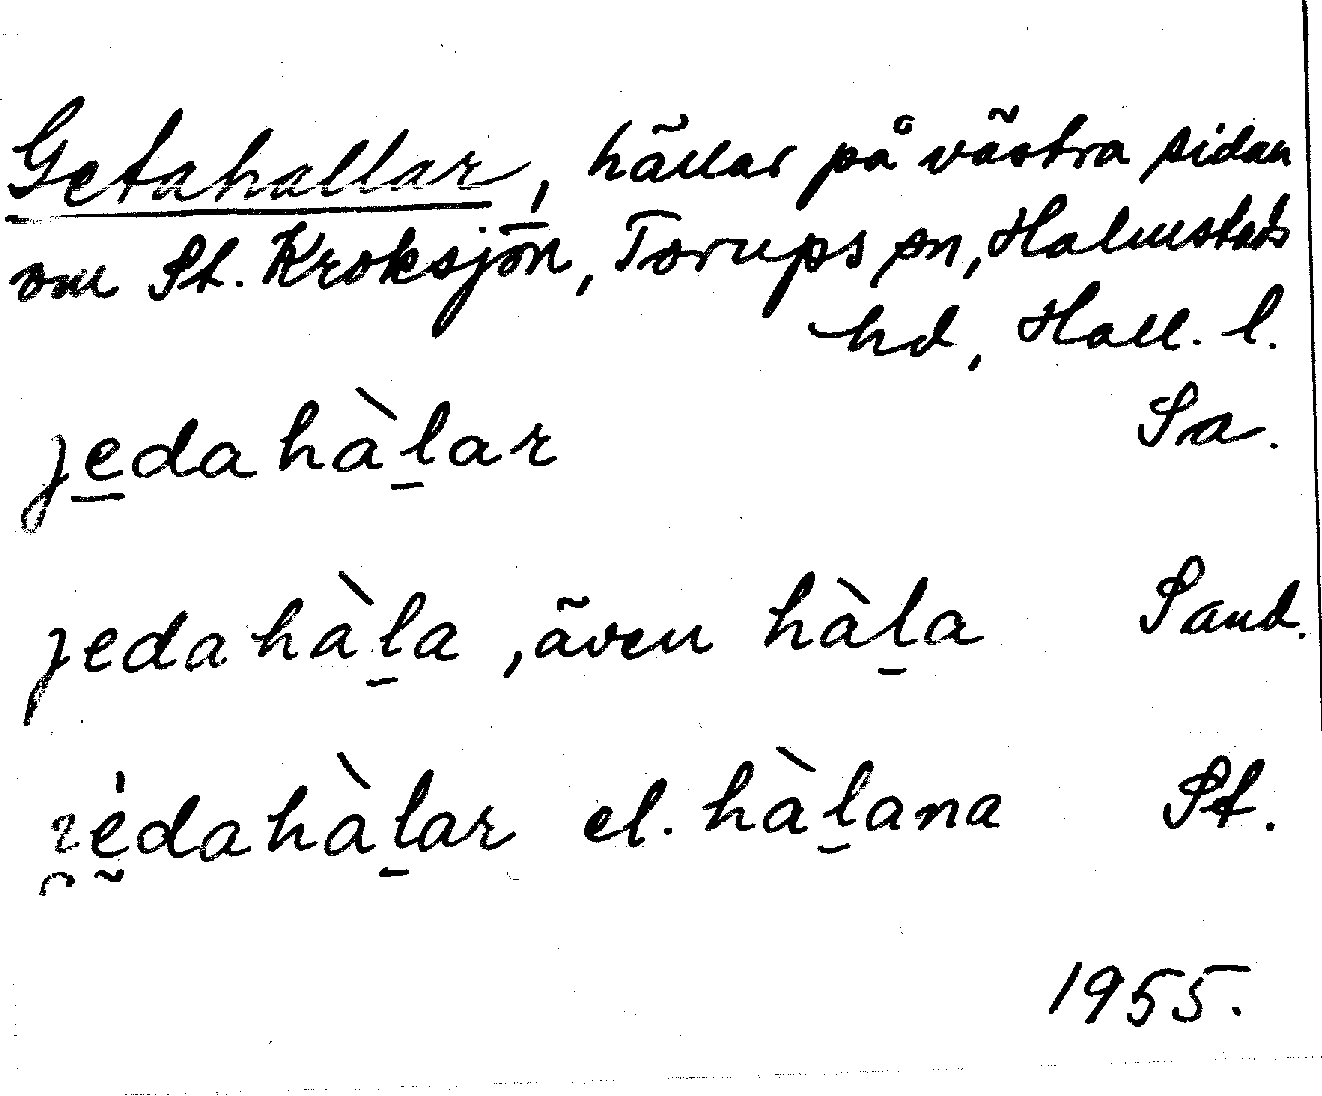 Getahallar, hällar på västra sidan
om St. Kroksjön, Torups sn, Halmstads
hd, Hall. l.
jedahàlar Sa.
jedahàla, även hàla Sand.
jèdahàlar el. hàlana St.
1955.